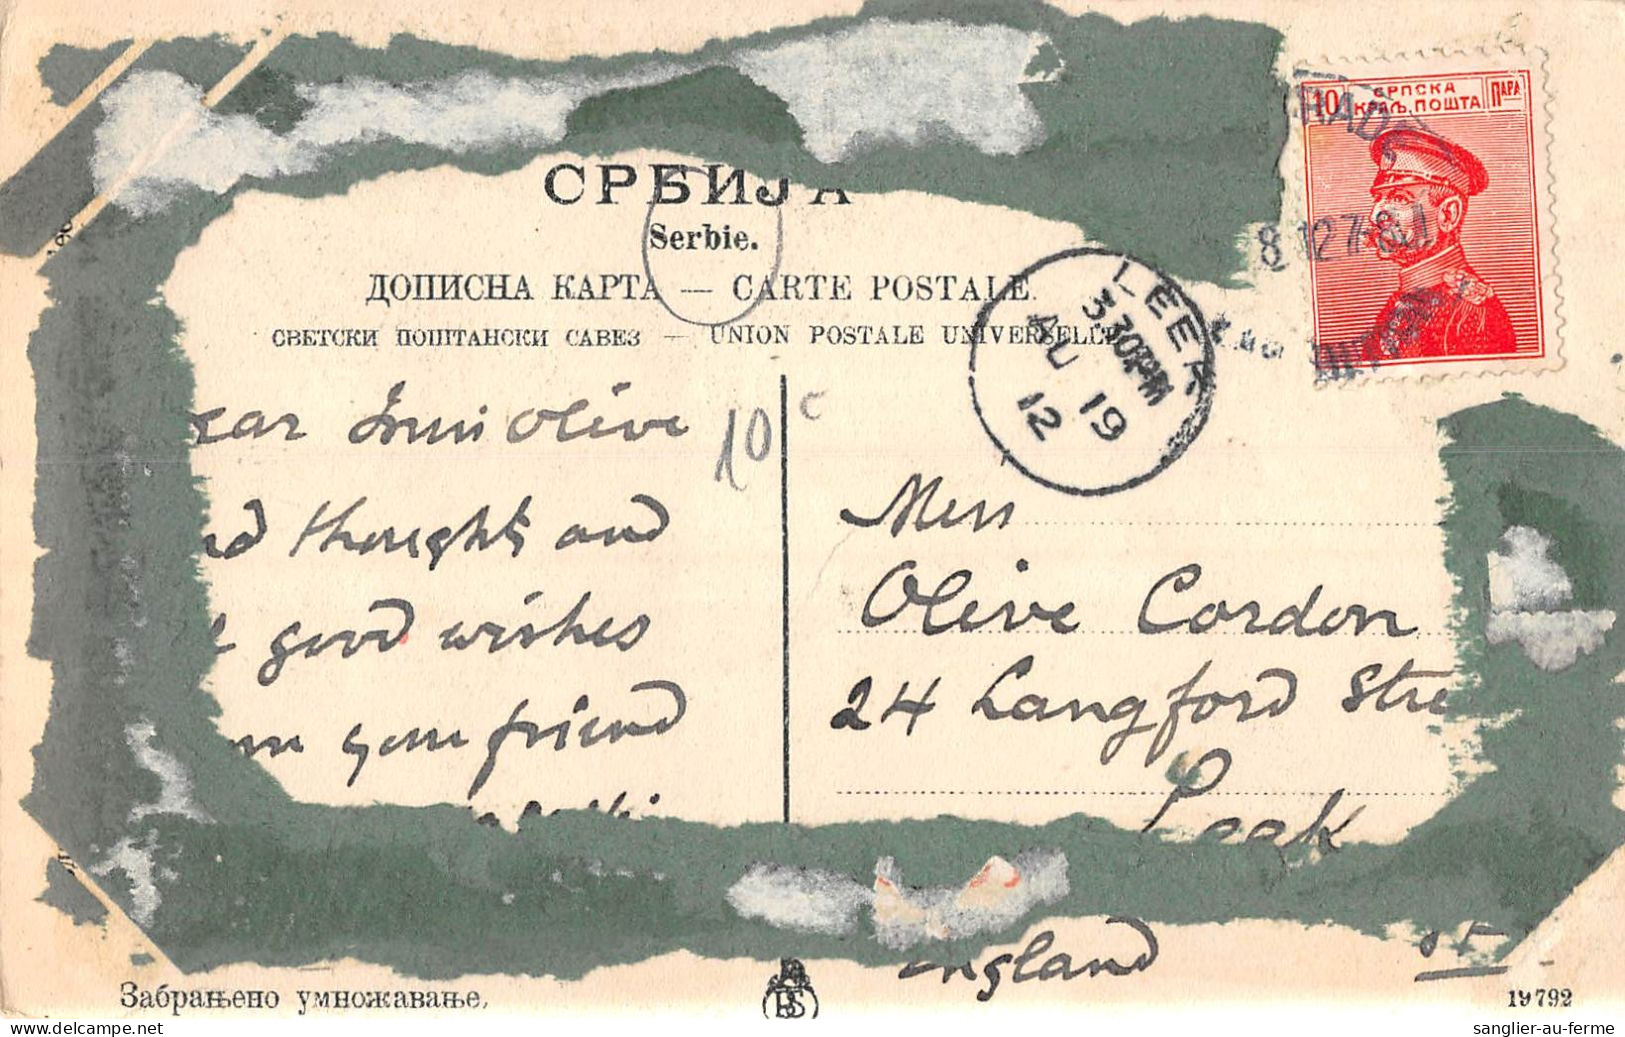 СРБИЈА
Serbie.
ДОПИСНА КАРТА — CARTE POSTALE.
СВЕТСКИ ПОШТАНСКИ САВЕЗ — UNION POSTALE UNIVERSELLE
10
СРПСКА
КРАЉ. ПОШТА
ПАРА
8 12 7-8
LEEK
3 30PM
AU 19
12
10 c
ear Miss Olive
nd thoughts and
good wishes
your friend
Miss
Olive Cordon
24 Langford Stre
Leek
England
Забрањено умножавање.
BS
19792
sanglier-au-ferme